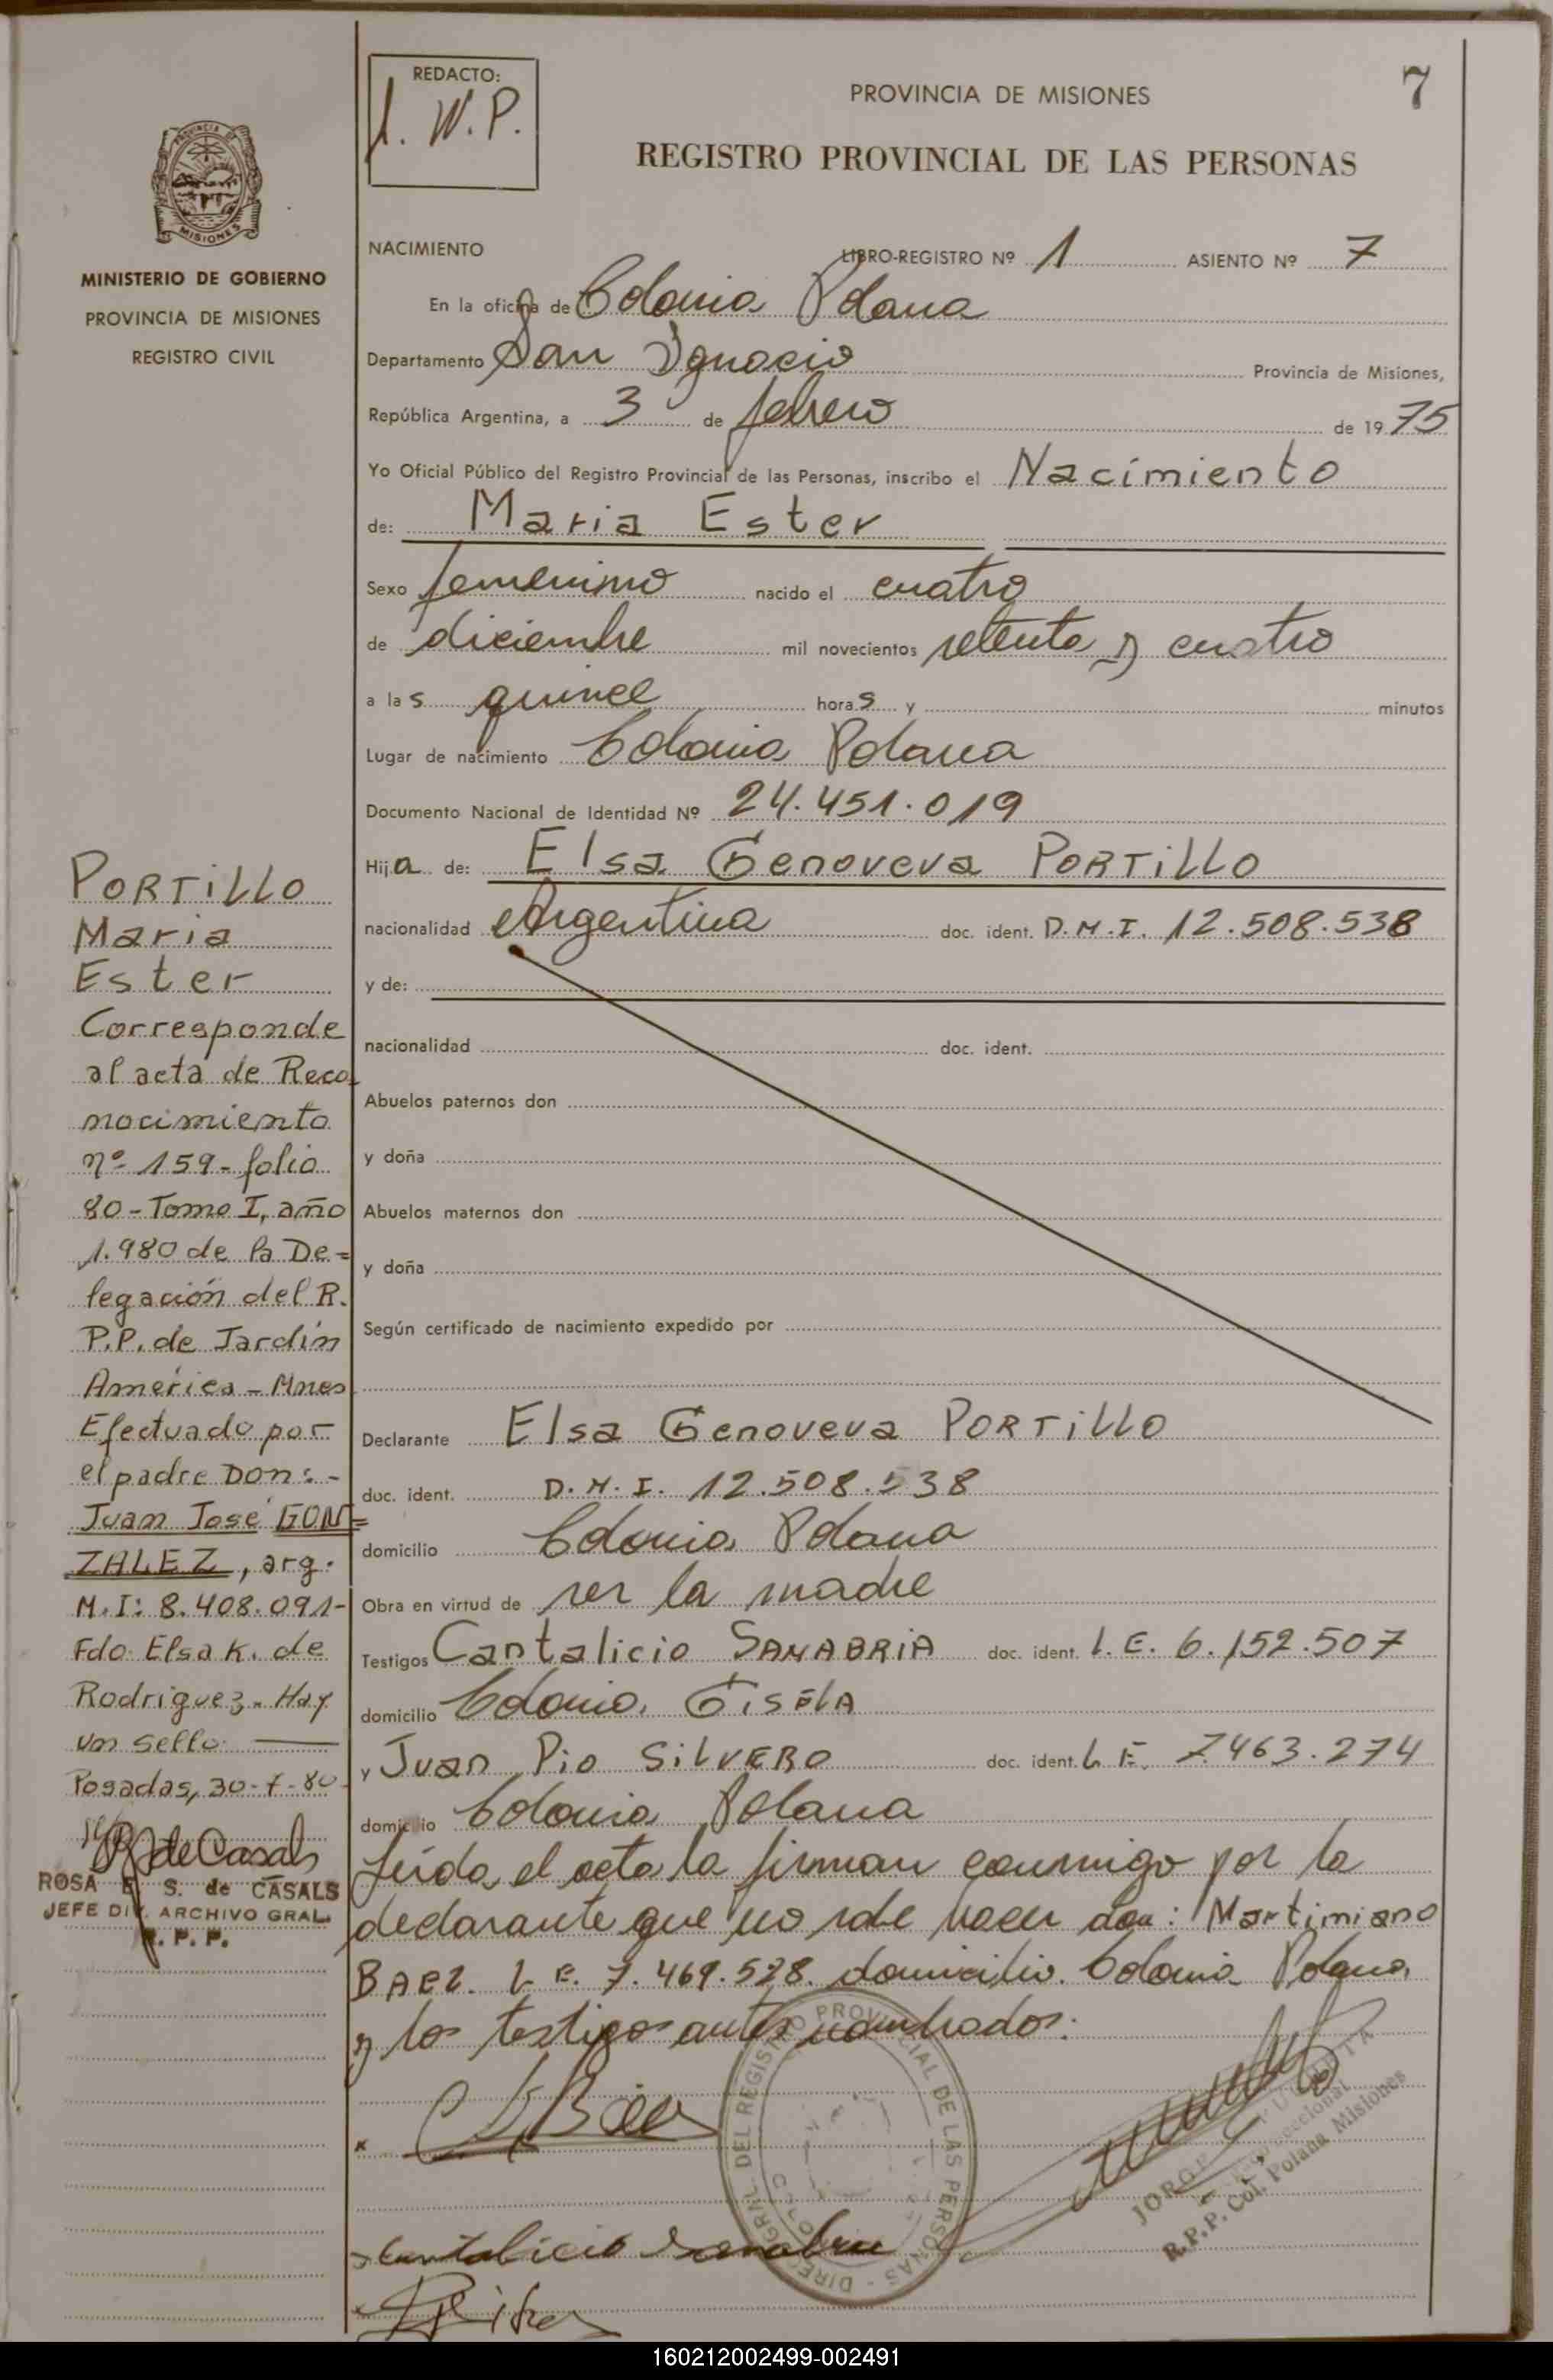 REDACTO:
PROVINCIA DE MISIONES
7
W. P.
REGISTRO PROVINCIAL DE LAS PERSONAS
MISIONES
MINISTERIO DE GOBIERNO
PROVINCIA DE MISIONES
REGISTRO CIVIL
NACIMIENTO LIBRO-REGISTRO Nº 1 ASIENTO Nº 7
En la oficina de Colonia Polana
Departamento San Ignacio Provincia de Misiones,
República Argentina, a 3 de febrero de 1975
Yo Oficial Público del Registro Provincial de las Personas, inscribo el Nacimiento
de: Maria Ester
Sexo femenino nacido el cuatro
de diciembre mil novecientos setenta y cuatro
a las quince horas y minutos
Lugar de nacimiento Colonia Polana
Documento Nacional de Identidad Nº 24.451.019
Hija de: Elsa Genoveva PORTILLO
nacionalidad Argentina doc. ident. D.N.I. 12.508.538
y de:
nacionalidad doc. ident.
Abuelos paternos don
y doña
Abuelos maternos don
y doña
Según certificado de nacimiento expedido por
Declarante Elsa Genoveva PORTILLO
doc. ident. D.N.I. 12.508.538
domicilio Colonia Polana
Obra en virtud de ser la madre
Testigos Cantalicio SANABRIA doc. ident. L.E. 6.152.507
domicilio Colonia GISELA
y Juan Pio SILVERO doc. ident. L.E. 7.463.274
domicilio Colonia Polana
Leida el acta la firman conmigo por la
declarante que no sabe hacer don: Martimiano
BAEZ. L.E. 7.469.528. domicilio Colonia Polana,
y los testigos antes nombrados.
PORTILLO
Maria
Ester
Corresponde
al acta de Reco-
nocimiento
nº 159- folio
80- Tomo I, año
1.980 de la De=
legación del R.
P.P. de Jardín
América - Mnes
Efectuado por
el padre Don: -
Juan José GON=
ZALEZ, arg.
M.I: 8.408.091-
Fdo. Elsa K. de
Rodriguez. Hay
un sello.
Posadas, 30-7-80
de Casals
ROSA E. S. de CASALS
JEFE DIV. ARCHIVO GRAL.
R. P. P.
DIREC. GRAL. DEL REGISTRO PROVINCIAL DE LAS PERSONAS
Cantalicio Sanabria
JORGE
R.P.P. Col. Polana Misiones
160212002499-002491